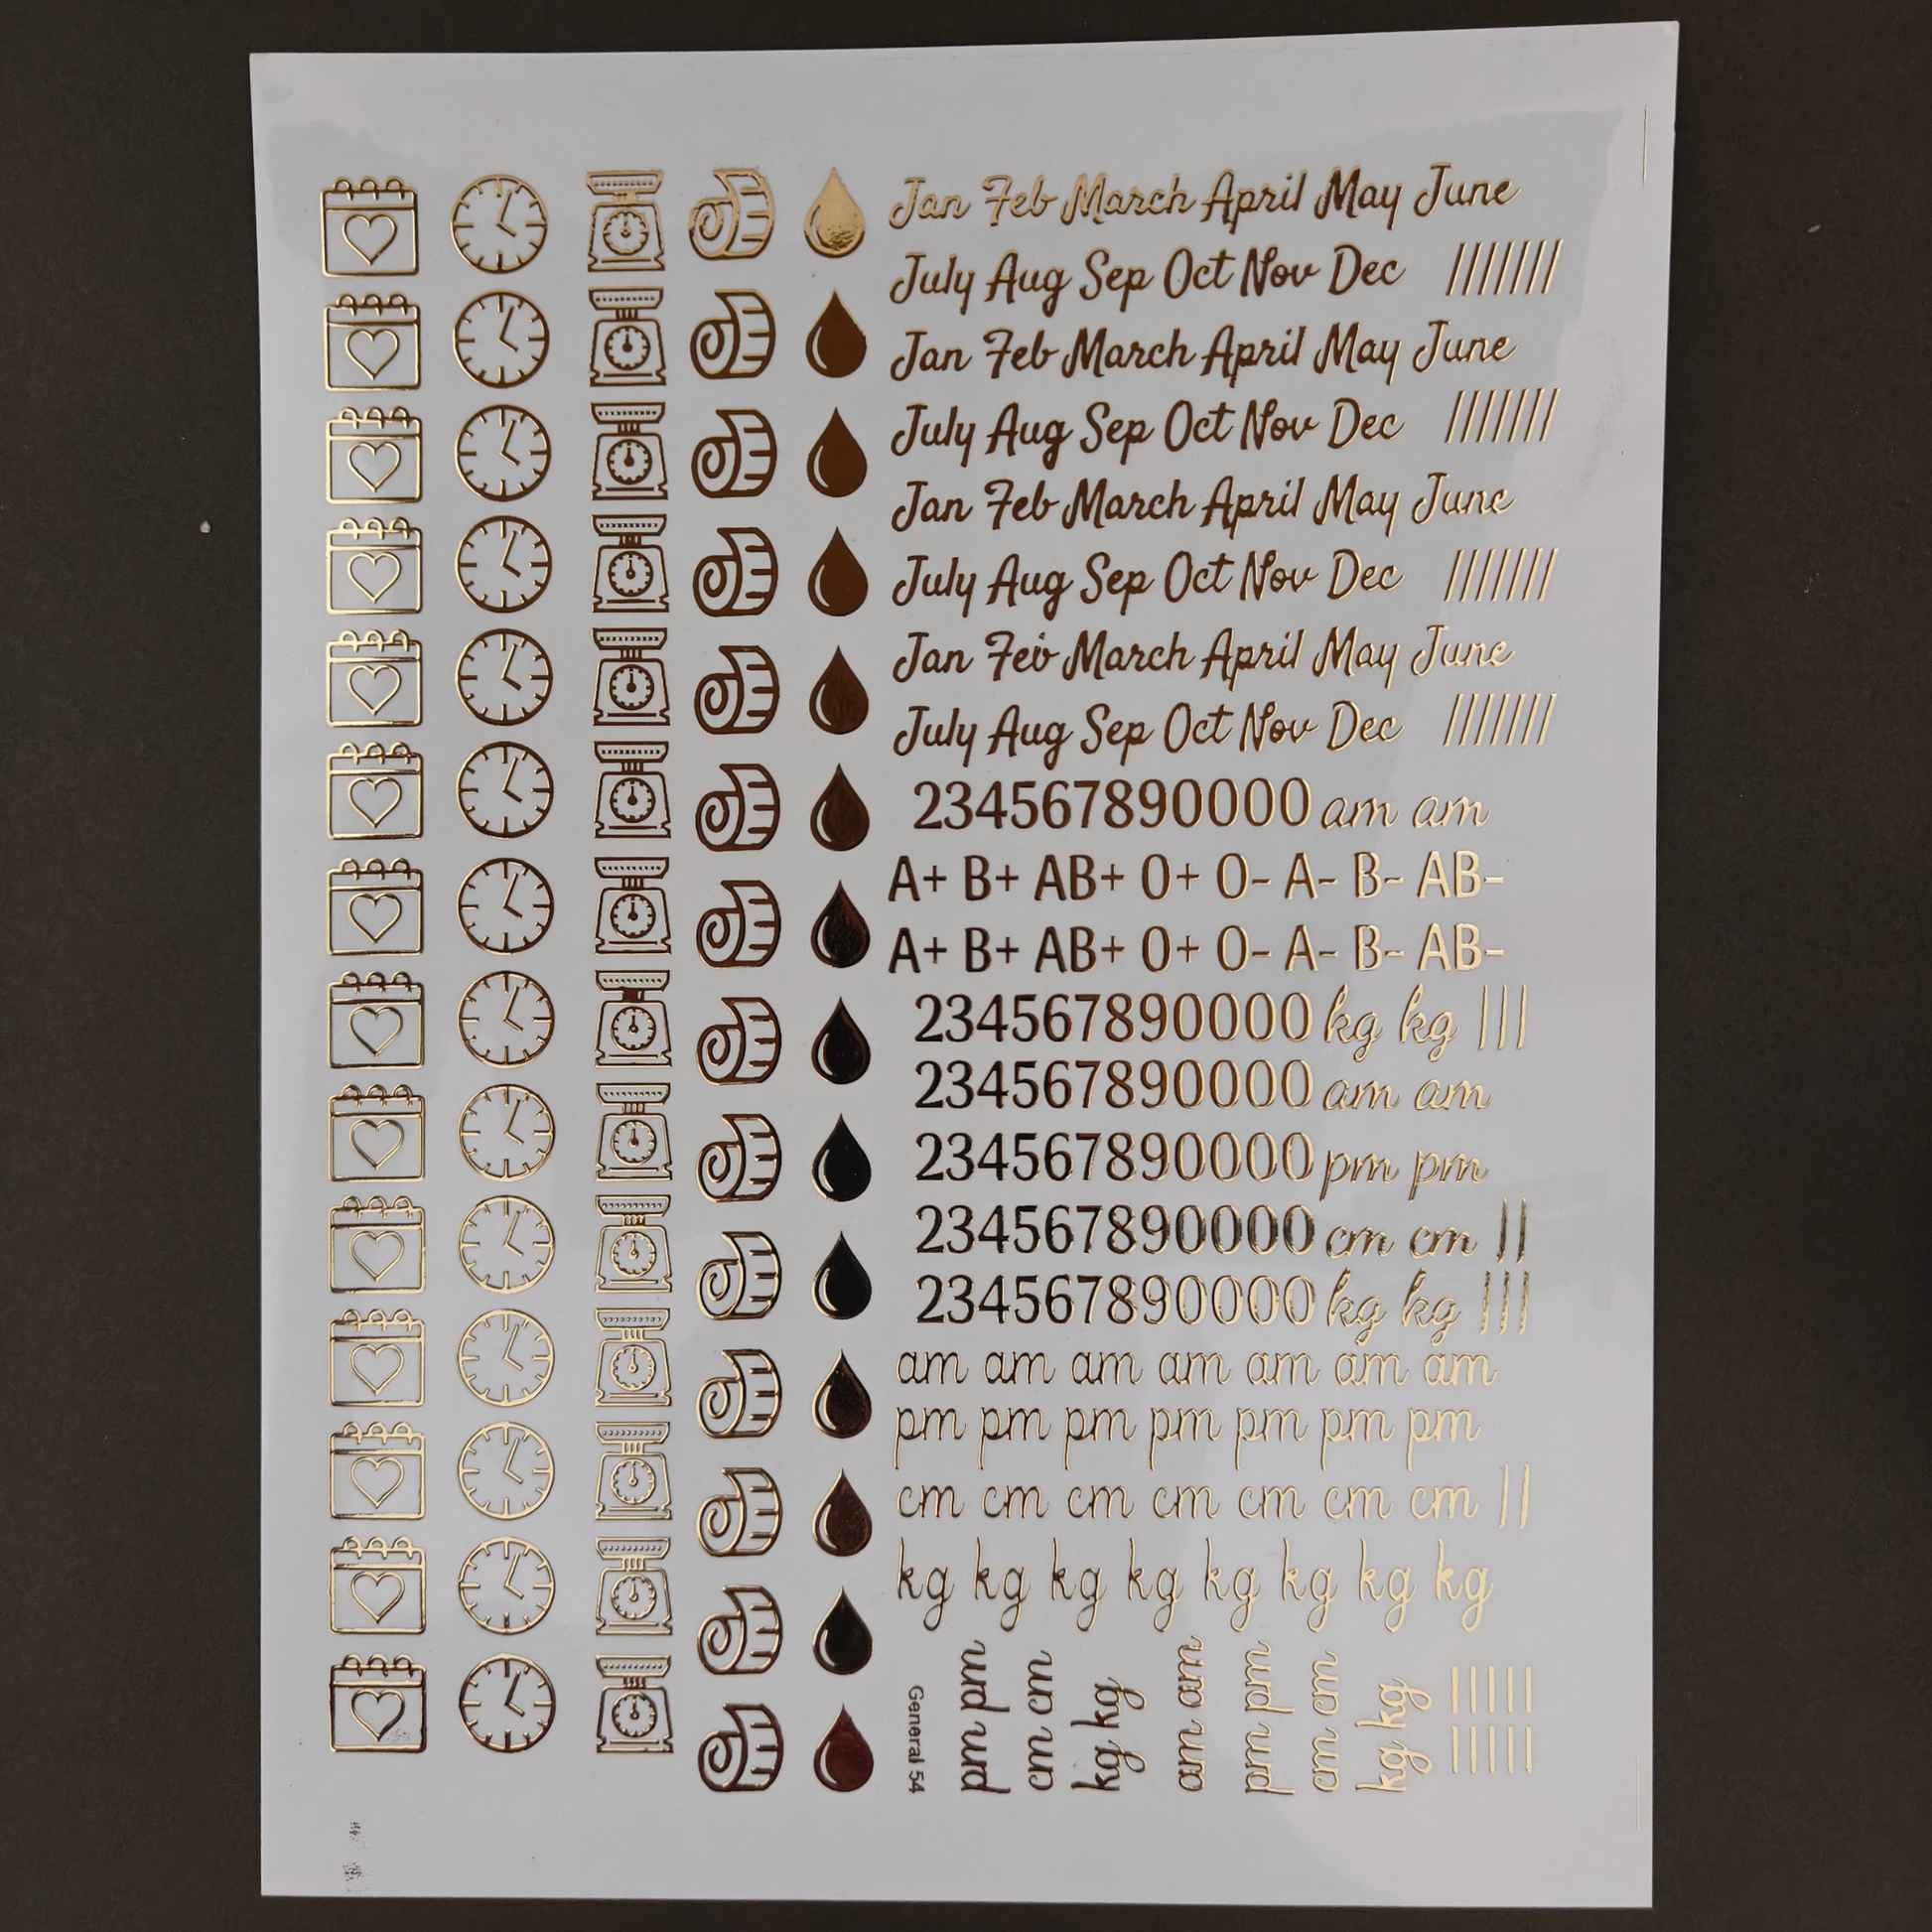 Jan Feb March April May June
July Aug Sep Oct Nov Dec ////////
Jan Feb March April May June
July Aug Sep Oct Nov Dec ////////
Jan Feb March April May June
July Aug Sep Oct Nov Dec ////////
Jan Feb March April May June
July Aug Sep Oct Nov Dec ////////
234567890000 am am
A+ B+ AB+ O+ O- A- B- AB-
A+ B+ AB+ O+ O- A- B- AB-
234567890000 kg kg |||
234567890000 am am
234567890000 pm pm
234567890000 cm cm ||
234567890000 kg kg |||
am am am am am am am
pm pm pm pm pm pm pm
cm cm cm cm cm cm cm ||
kg kg kg kg kg kg kg kg
General 54
pm pm
cm cm
kg kg
am am
pm pm
cm cm
kg kg
|||||
|||||